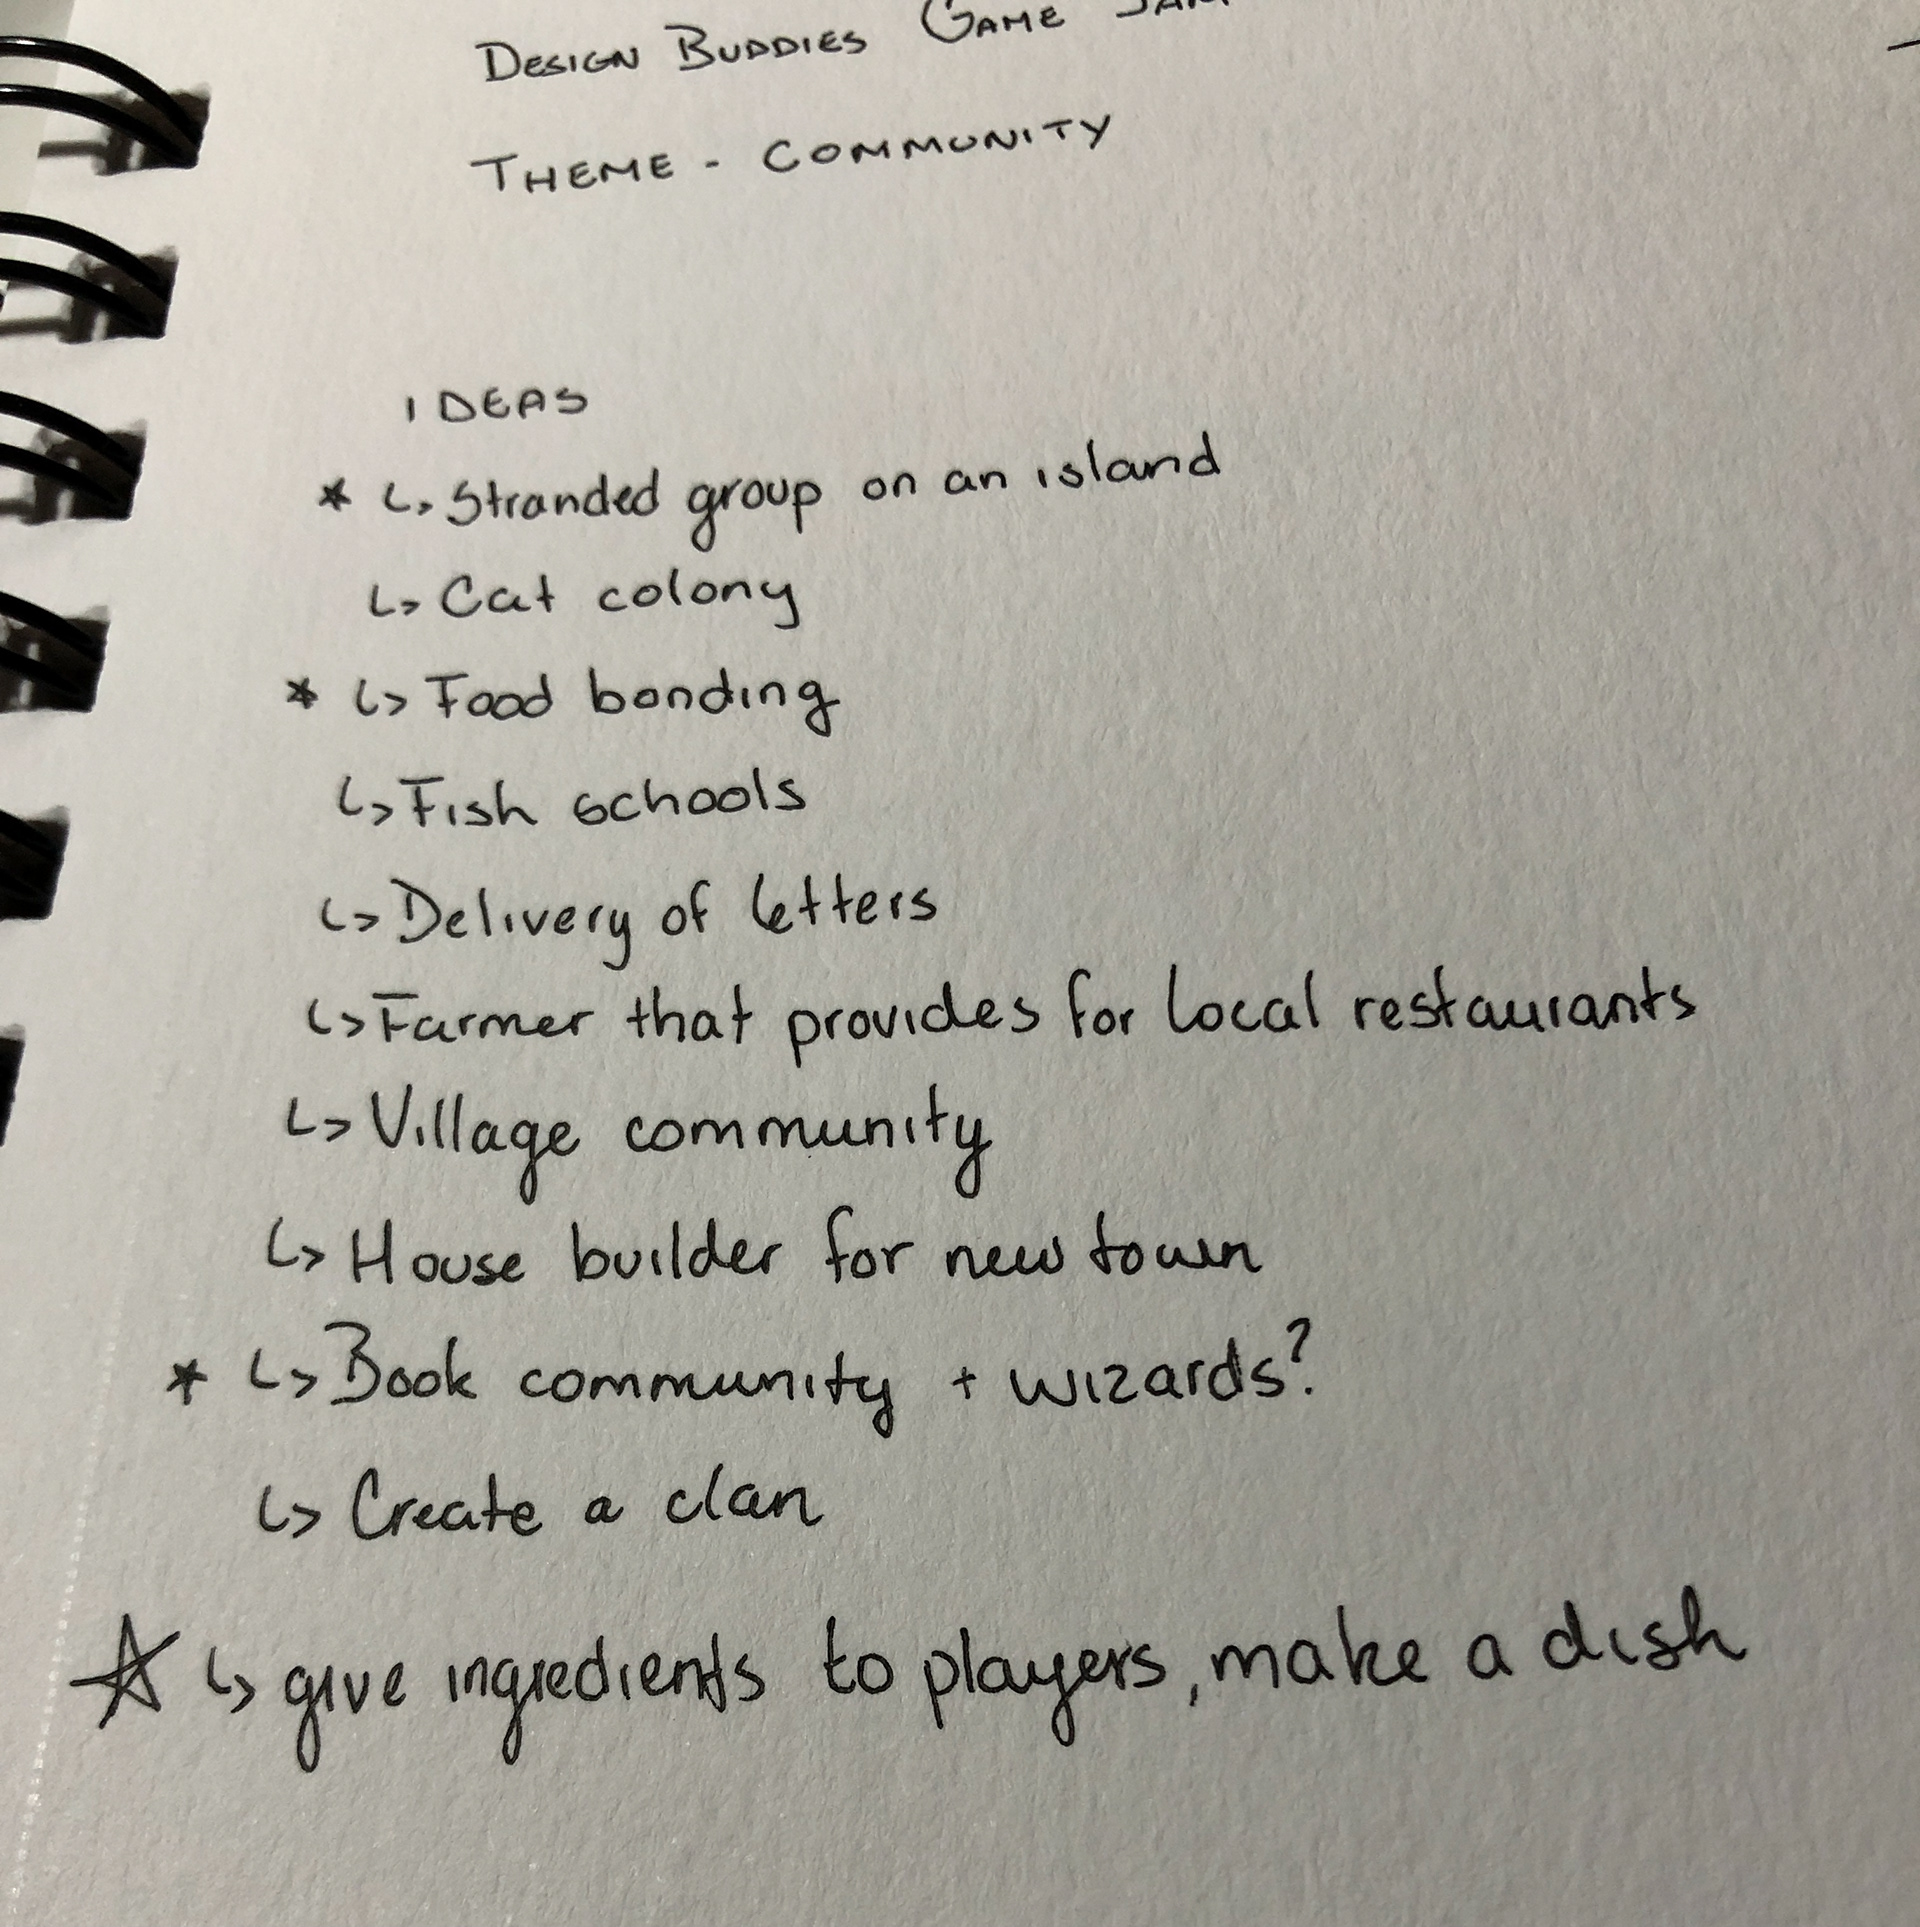 DESIGN BUDDIES GAME JAM
THEME - COMMUNITY
IDEAS
* ↳ Stranded group on an island
↳ Cat colony
* ↳ Food bonding
↳ Fish schools
↳ Delivery of letters
↳ Farmer that provides for local restaurants
↳ Village community
↳ House builder for new town
* ↳ Book community + wizards?
↳ Create a clan
☆ ↳ give ingredients to players, make a dish